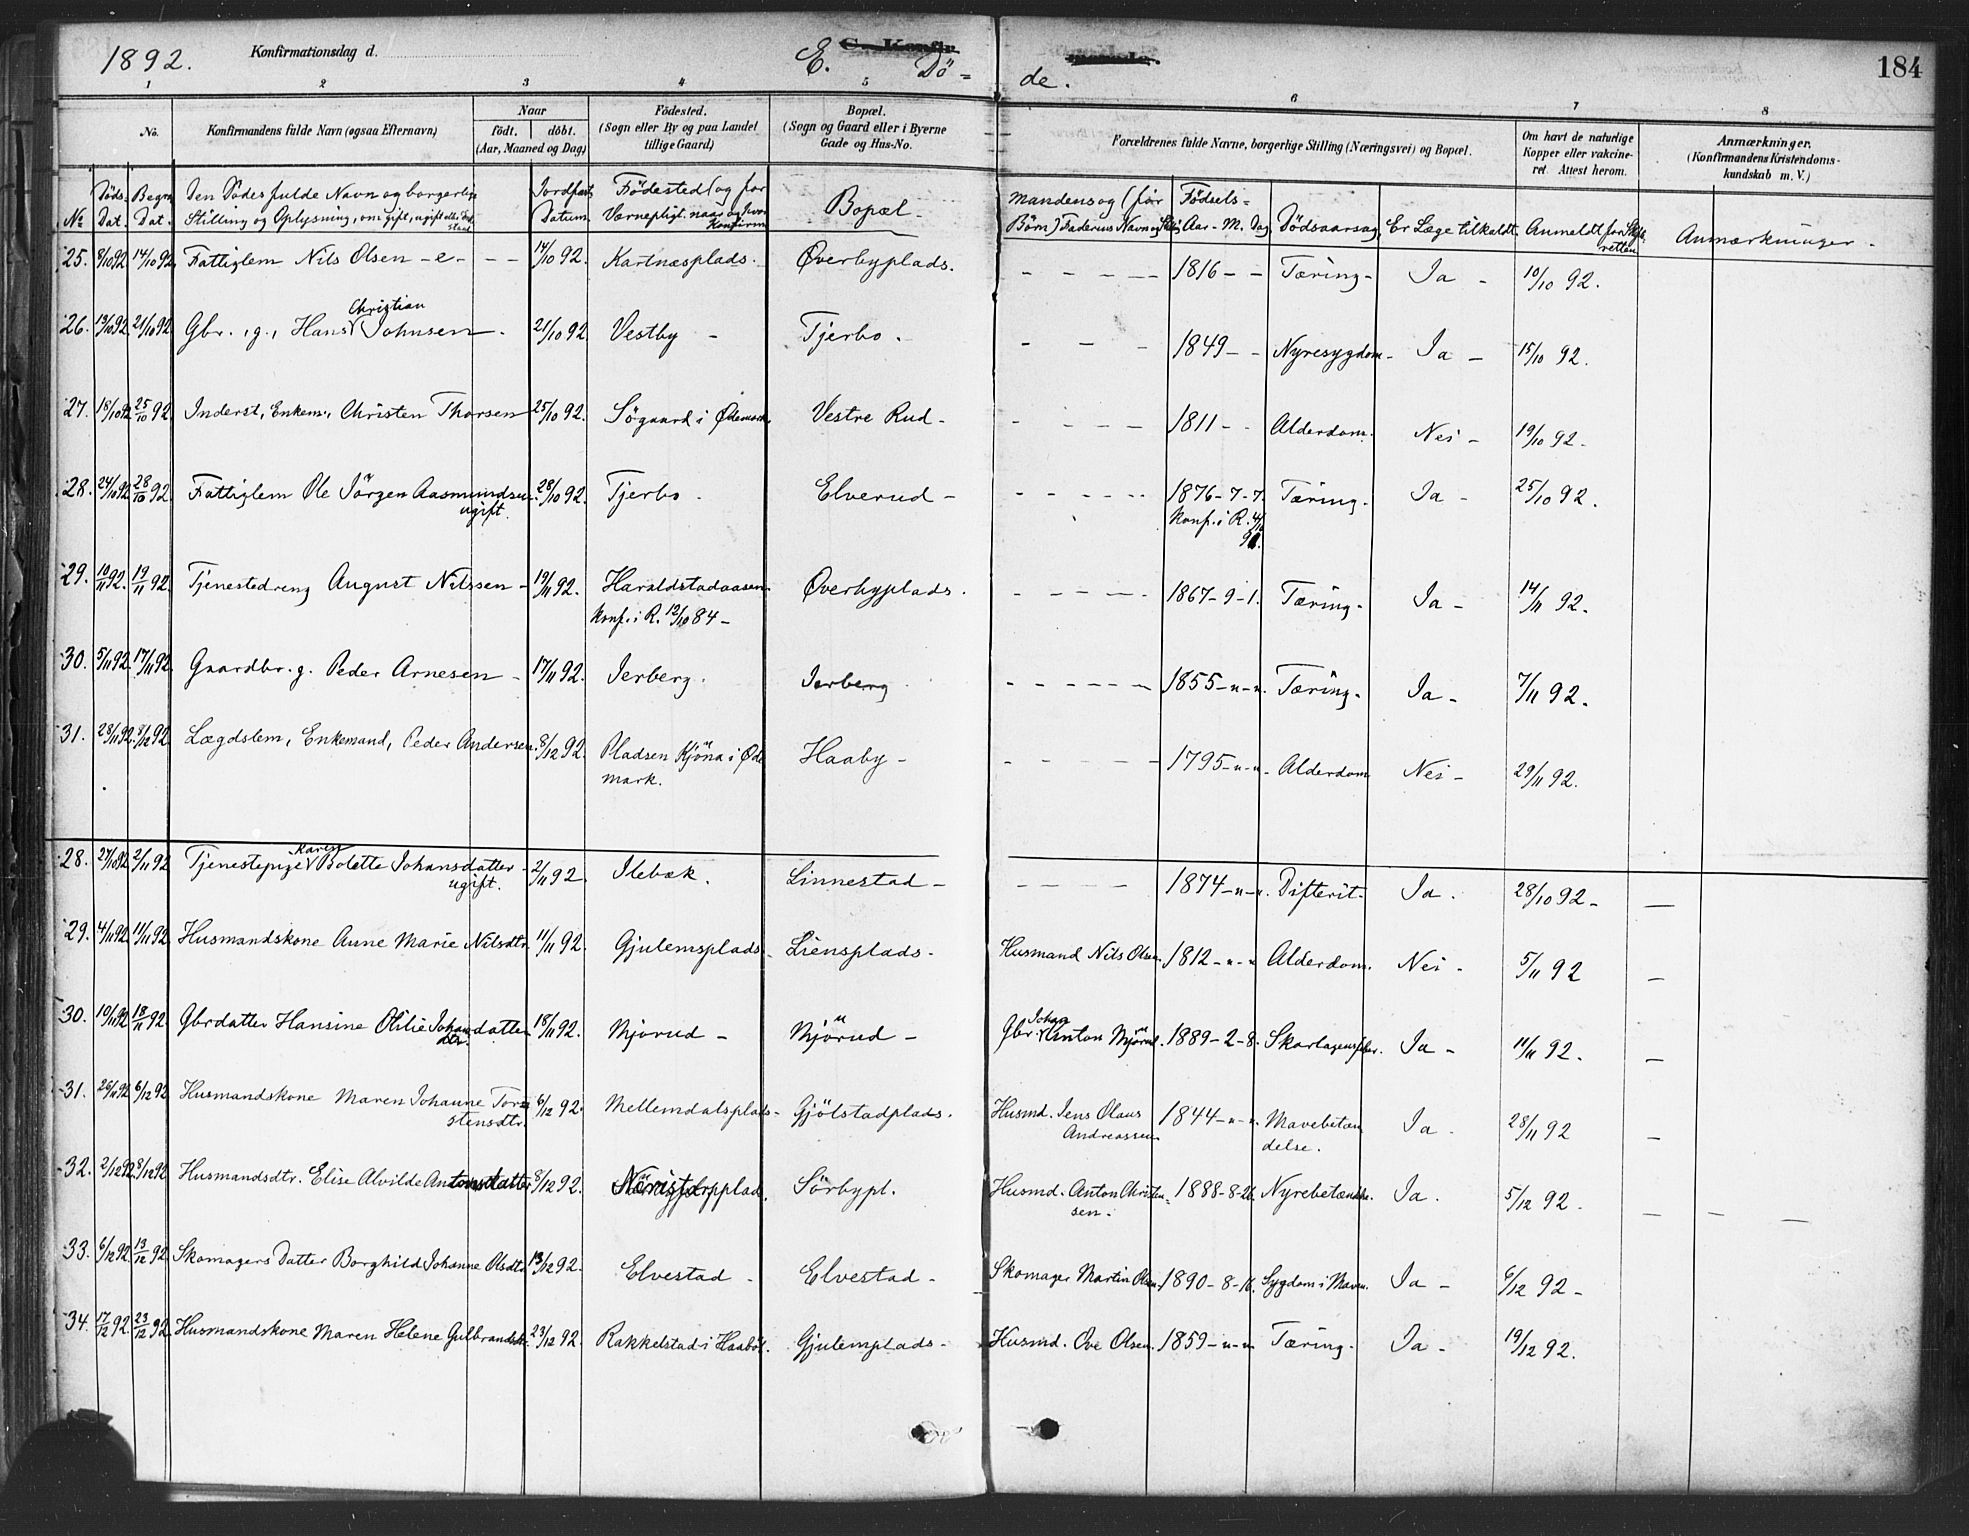 1892. Konfirmationsdag d. E. C. Konfir- Dö- de. 184
1 2 3 4 5 6 7 8
No. Konfirmandens fulde Navn (ogsaa Efternavn) Naar födt. döbt. (Aar, Maaned og Dag) Födested. (Sogn eller By og paa Landet tillige Gaard) Bopæl. (Sogn og Gaard eller i Byerne Gade og Hus-No. Forældrenes fulde Navne, borgerlige Stilling (Næringsvei) og Bopæl. Om havt de naturlige Kopper eller vakcineret. Attest herom. Anmærkninger. (Konfirmandens Kristendomskundskab m. V.)
No Döds Dat. Begr. Dat. Den Dödes fulde Navn og borgerlige Stilling og Oplysning, om gift, ugift eller Enkestand Jordfæst. Datum Födested (og for Værnepligt. naar og hvor Konfirm. Bopæl. Mandens og (for Börn) Faderens Navn og Still. Födsels- Aar - M. Dag Dödsaarsag Er Læge tilkaldt Anmeldt for Skifteretten Anmærkninger.
25. 8/10 92 14/10 92 Fattiglem Nils Olsen - e - - - 14/10 92. Kartnæsplads. Överbyplads. - - - - 1816 - - Tæring - Ia - 10/10 92.
26. 13/10 92 21/10 92 Gbr. g., Hans Christian Johnsen - 21/10 92 Vestby - Tjerbo. - - - 1849 - - Nyresygdom - Ia - 15/10 92.
27. 18/10 92 25/10 92 Inderst, Enkem., Christen Thorsen 25/10 92. Sögaard i Ödemark Vestre Rud - - - - - 1811 - - Alderdom. Nei - 19/10 92.
28. 24/10 92 28/10 92 Fattiglem Ole Jörgen Aasmundsen ugift. 28/10 92. Tjerbo - Elverud - - - - - 1876 - 7 - 7. Konf. i R. Tæring. Ia - 25/10 92.
29. 10/11 92. 19/11 92. Tjenestedreng August Nilssen - 19/11 92. Haraldstadaasen Konf. i R. 12/10 84 - Överbyplads. - - - - 1867 - 9 - 1. Tæring - Ia - 14/11 92.
30. 5/11 92. 17/11 92. Gaardbr. g. Peder Arnesen - 17/11 92. Ierberg. Ierberg - - - - - 1855 - " - ". Tæring - Ia - 7/11 92.
31. 28/11 92. 8/12 92 Lægdslem, Enkemand, Peder Andersen. 8/12 92. Pladsen Kjöna i Ödemark. Haaby - - - - - 1795 - " - " - Alderdom Nei - 29/11 92.
28. 27/10 92 2/11 92 Tjenestepige Karen Bolette Johansdatter - ugift. 2/11 92. Ilebæk. Linnestad - - - - - 1874 - " - ". Difterit - Ia. 28/10 92 - —
29. 4/11 92 11/11 92 Husmandskone Anne Marie Nilsdtr. 11/11 92. Gjulemsplads - Liensplads - Husmand Nils Olsen 1812 - " - " Alderdom. Nei - 5/11 92 —
30. 10/11 92 18/11 92 Gbrdatter Hansine Otilie Johan datter dtr. 18/11 92. Mjorud - Mjörud - Gbr. Johan Anton Mjörud. 1889 - 2 - 8 - Skarlagensfeber. Ia - 11/11 92. —
31. 26/11 92 6/12 92 Husmandskone Maren Johanne Torstensdtr. 6/12 92. Mellemdalsplads - Gjölstadplads. Husmd. Jens Olaus Andreassen 1844 - " - ". Mavebetændelse. Ia - 28/11 92 —
32. 2/12 92. 8/12 92 Husmandsdtr. Elise Alvilde Antonsdatter 8/12 92. Sörbypl. Husmd. Anton Christensen - 1888 - 8 - 26. Nyrebetændelse. Ia. 5/12 92. — — —
33. 6/12 92. 13/12 92 Skomagers Datter Borghild Johanne Olsdtr. 13/12 92 - Elvestad - Elvestad - Skomager Martin Olsen 1890 - 8 - 16. Sygdom i Maven. Ia - 6/12 92 -
34. 17/12 92. 23/12 92. Husmandskone Maren Helene Gulbrandsdtr. 23/12 92. Rakkelstad i Haaböl. Gjulemplads - Husmd. Ove Olsen. 1859 - " - " Tæring - Ia - 19/12 92.